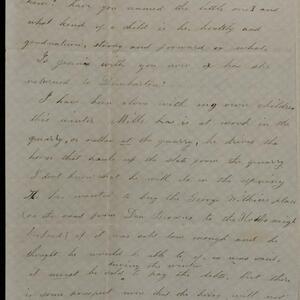 have you named the little one? and
what kind of a child is he, healthy and
goodnatured, strong and forward or what.
Is Jessie with you now or has she
returned to Dunbarton?
I have been alone with my own children
this winter. Mills has is at work in the
quarry, or rather at the quarry, he drives the
horse that hauls up the slate from the quarry
I don't know what he will do in the spring
He has wanted to buy the George Withins place
(on the road from Dan Browns to the
if it was sold low enough and he
thought he would be able to, if, as was said,
during the winter
it must be sold to pay the debts, but there
is some prospect now that the heirs will not